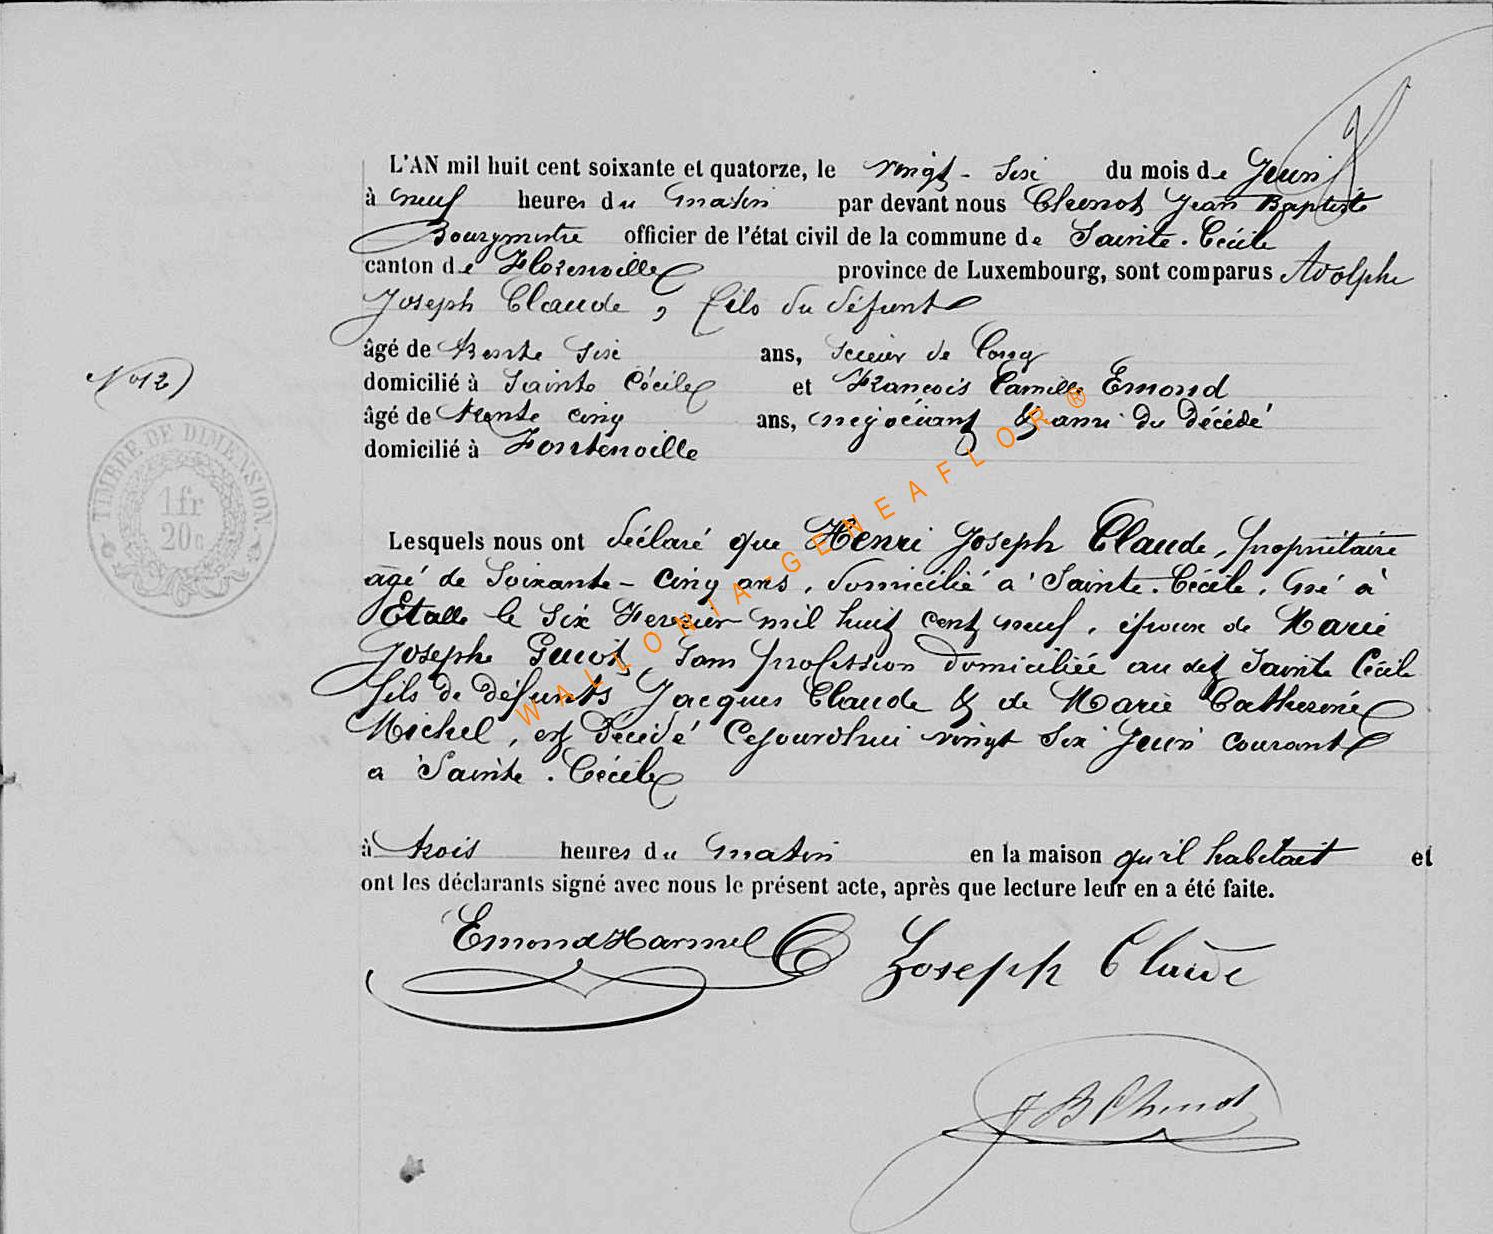 L'AN mil huit cent soixante et quatorze, le vingt-six du mois de Juin
à neuf heures du matin par devant nous Chenot Jean Baptiste
Bourgmestre officier de l'état civil de la commune de Sainte-Cécile
canton de Florenville province de Luxembourg, sont comparus Adolphe
Joseph Claude, fils du défunt
âgé de trente six ans, scieur de long
No 12)
domicilié à Sainte Cécile et François Camille Emond
âgé de trente cinq ans, négociant & ami du décédé
domicilié à Fontenoille
TIMBRE DE DIMENSION
1 fr
20 c
Lesquels nous ont déclaré que Henri Joseph Claude, propriétaire
agé de Soixante-cinq ans, domicilié à Sainte-Cécile, né à
Etalle le six Fevrier mil huit cent neuf, époux de Marie
Josephe Guiot, sans profession domiciliée au dit Sainte Cécile
fils de défunts Jacques Claude & de Marie Catherine
Michel, est décédé cejourd'hui vingt six Juin courant
a Sainte-Cécile
à trois heures du matin en la maison qu'il habitait et
ont les déclarants signé avec nous le présent acte, après que lecture leur en a été faite.
Emond Harmel Joseph Claude
J B Chenot
WALLONIA-GENEAFLOR®